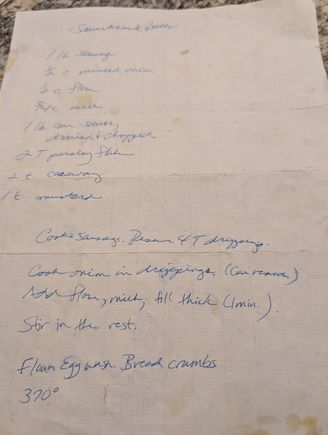 Sauerkraut Balls
1 lb sausage
¼ c minced onion
½ c flour
¾ c milk
1 lb can sauer,
drained & chopped
2 T parsley flakes
2 t. caraway
1 t. mustard
Cook sausage. Reserve 4 T drippings.
Cook onion in drippings. (Can remove)
Add flour, milk, till thick (1 min.).
Stir in the rest.
Flour Egg wash. Bread crumbs
370°